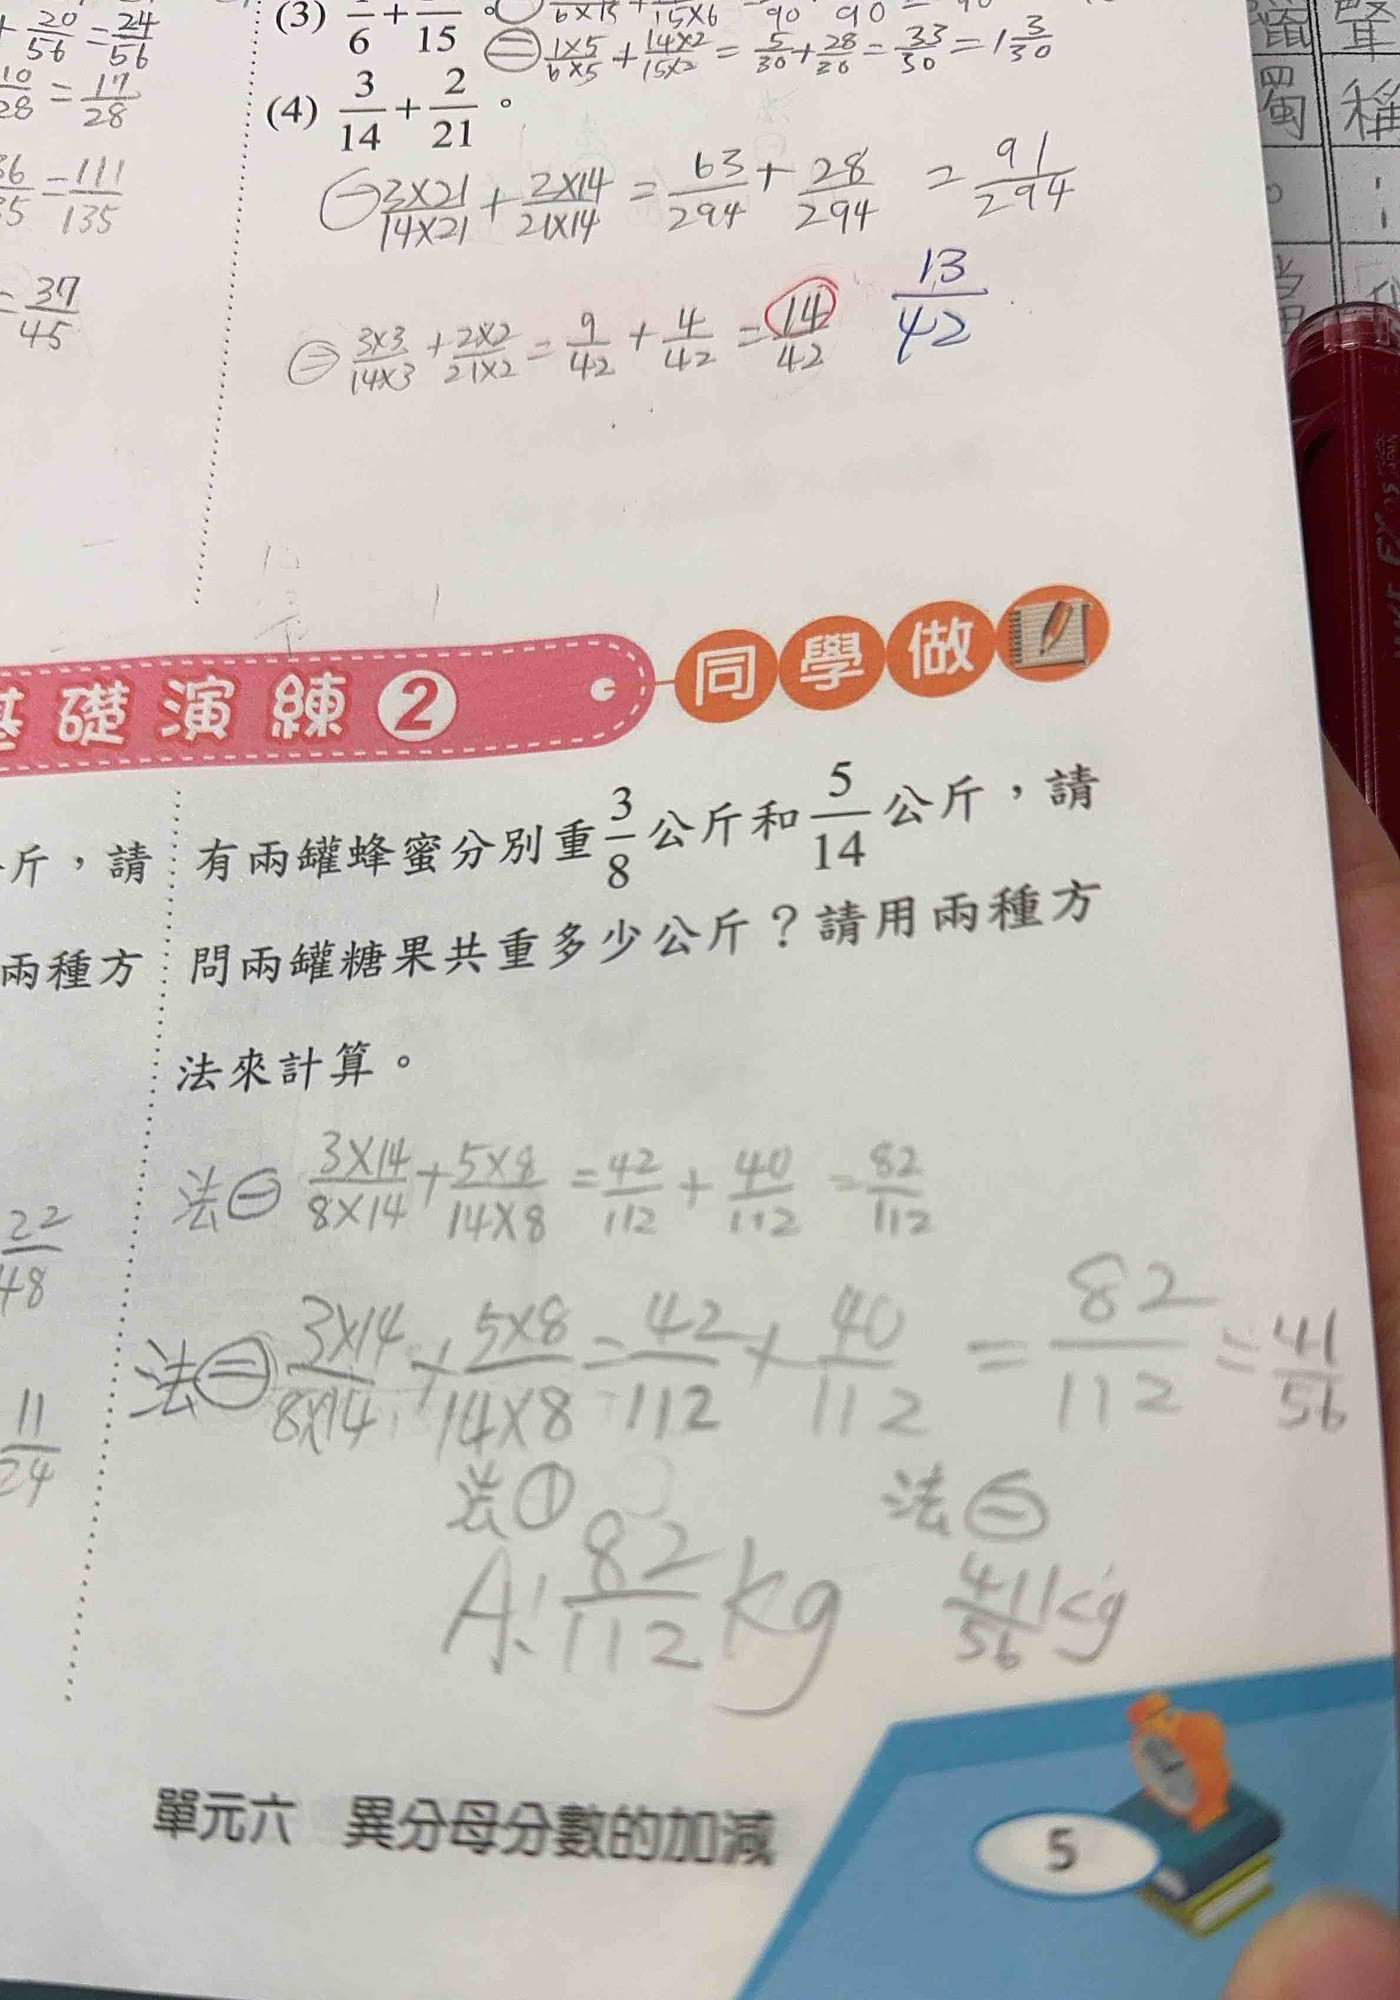 + 20/56 = 24/56
10/28 = 17/28
36/135 = 111/135
= 37/45
(3) 1/6 + 14/15。
㊁ 1×5/6×5 + 14×2/15×2 = 5/30 + 28/30 = 33/30 = 1 3/30
(4) 3/14 + 2/21。
㊀ 3×21/14×21 + 2×14/21×14 = 63/294 + 28/294 = 91/294
㊁ 3×3/14×3 + 2×2/21×2 = 9/42 + 4/42 = 14/42 13/42
基礎演練2 同學做
斤,請
兩種方
有兩罐蜂蜜分別重3/8公斤和5/14公斤,請
問兩罐糖果共重多少公斤?請用兩種方
法來計算。
22/48
11/24
法㊀ 3×14/8×14 + 5×8/14×8 = 42/112 + 40/112 = 82/112
法㊁ 3×14/8×14 + 5×8/14×8 = 42/112 + 40/112 = 82/112 = 41/56
法① 法㊁
A: 82/112 kg 41/56 kg
單元六 異分母分數的加減
5